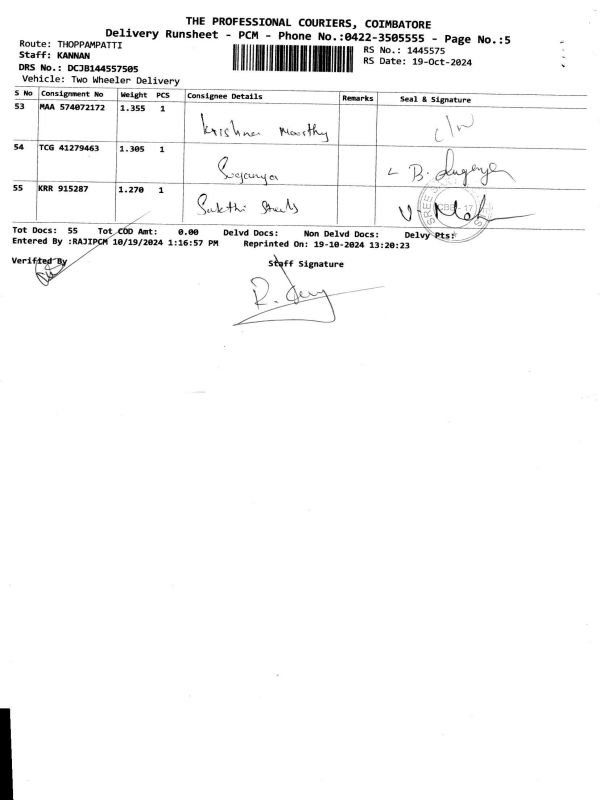 THE PROFESSIONAL COURIERS, COIMBATORE
Delivery Runsheet - PCM - Phone No.:0422-3505555 - Page No.:5
Route: THOPPAMPATTI RS No.: 1445575
Staff: KANNAN RS Date: 19-Oct-2024
DRS No.: DCJB144557505
Vehicle: Two Wheeler Delivery
S No Consignment No Weight PCS Consignee Details Remarks Seal & Signature
53 MAA 574072172 1.355 1
Krishna Moorthy
54 TCG 41279463 1.305 1
Suganya B.
55 KRR 915287 1.270 1
Sakthi Steels
SREE
CBE - 17
Tot Docs: 55 Tot COD Amt: 0.00 Delvd Docs: Non Delvd Docs: Delvy Pts:
Entered By :RAJIPCM 10/19/2024 1:16:57 PM Reprinted On: 19-10-2024 13:20:23
Verified By Staff Signature
R.